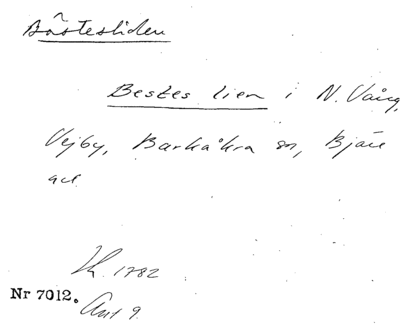 Båstesliden
Bestes lien i N. Vång,
Vejby, Barkåkra sn, Bjäre
hd
Lk. 1782
Nr 7012.
Akt 9